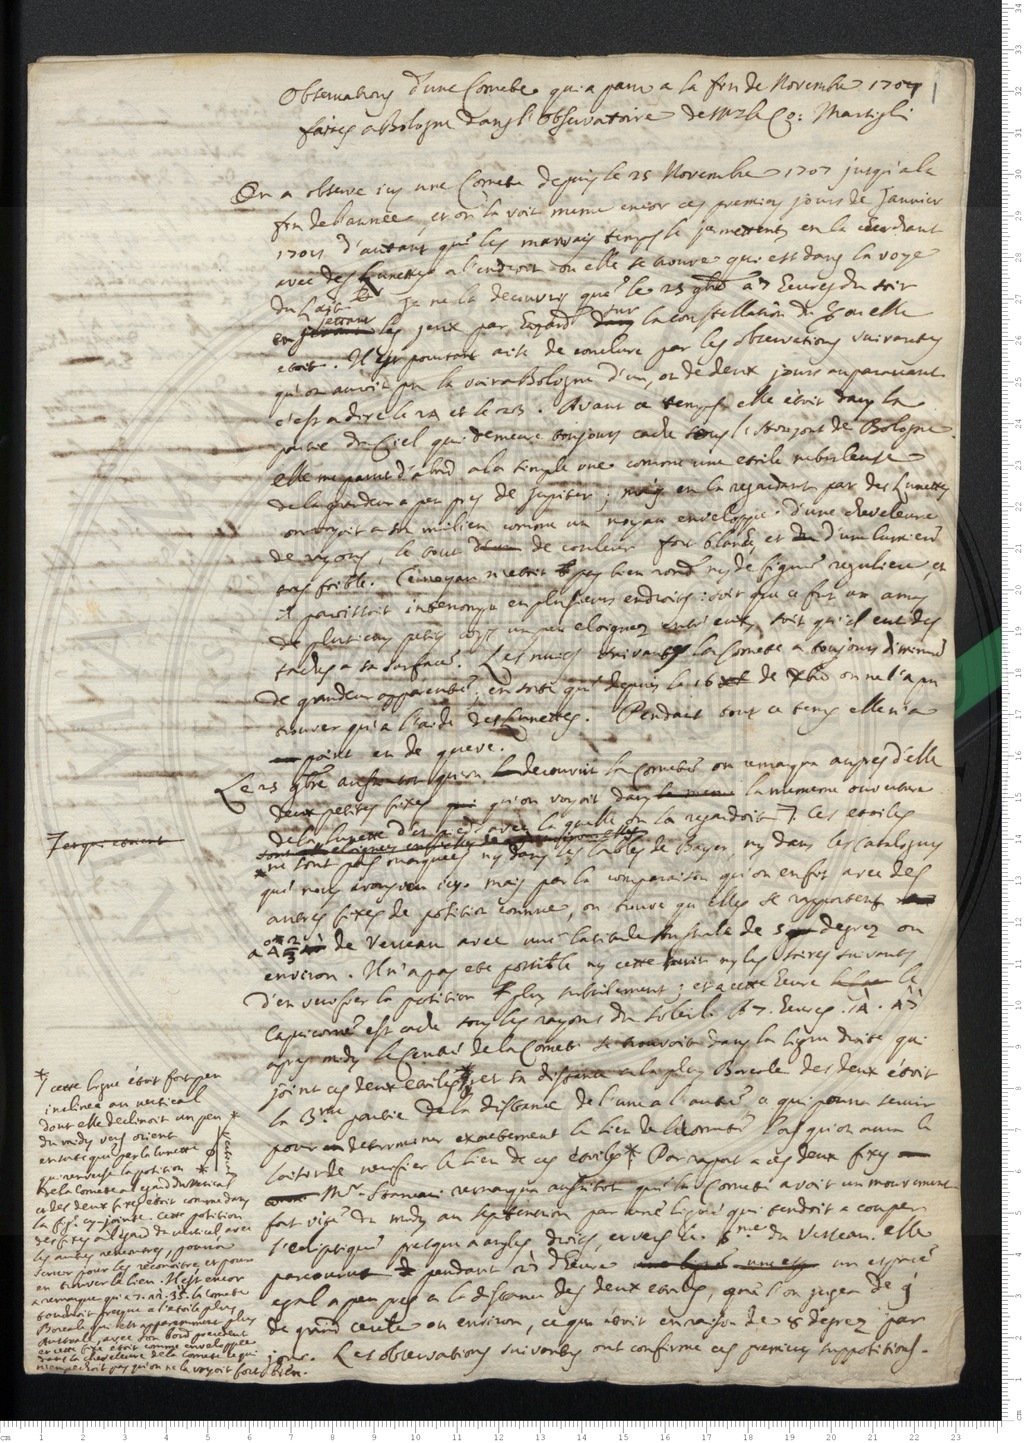 Observations d'une Comete qui a paru a la fin de Novembre 1707
faites a Bologne dans l'Observatoire de Mr le Co: Marsigli
On a observe icy une Comete depuis le 25 Novembre 1707 jusqu'a la
fin de l'année, et on la voit meme encor ces premiers jours de Janvier
d'autant que les mauvais temps le permettent, en la cherchant
avec des Lunettes a l'endroit ou elle se trouve qui est dans la voye
du Lait. Je ne la decouvris que le 25 9bre a 7 Eures du soir
en jettant les jeux par Ezard sur la constellation de ou elle
etoit. Il est pourtant aisé de conclure par les observations suivantes
qu'on auroit pu la voir a Bologne d'un, ou de deux jours auparavant
c'est a dire le 24 et le 23. Avant ce temps elle étoit dans la
partie du Ciel qui demeure toujours cachée sous l'Horizont de Bologne.
elle me parut d'abord a la simple vue comme une etoile nebuleuse
de la grandeur a peu pres de Jupiter; mais en la regardant par des Lunettes
on voyoit a son milieu comme un noyau enveloppé d'une cheveleure
de rayons, le tout de couleur fort blanche, et d'une lumiere
assez foible. Ce noyau n'etoit pas bien rond ny de figure reguliere, et
il paroissoit interrompu en plusieurs endroits: soit que ce fut un amas
de plusieurs petits corps un peu eloignez entr'eux, soit qu'il eut des
taches a sa surface. Les nuits suivantes la Comete a toujours diminué
de grandeur apparente; en sorte que depuis le 16 de Xbre on ne l'a pu
trouver qu'a l'aide des Lunettes. Pendant tout ce tems elle n'a
point eu de queue.
Le 25 9bre qu'on decouvrit la Comete on remarqua aupres d'elle
deux petites fixes qu'on voyoit dans la mesme ouverture
de la lunette avec la quelle on la regardoit. Ces etoiles
ne sont pas marquées ny dans les tables de Bayer, ny dans les Catalogues
que nous avons veu icy. mais par la comparaison qu'on en fit avec des
autres fixes de position connue, on trouve qu'elles se rapportent
de Verseau avec une latitude Australe de 5 degrez ou
environ. Il n'a pas eté possible ny cette ny les soires suivants
d'en verifier la position plus subtilement; et a cette Eure le
Capricorne est caché sous les rayons du Soleil. A 7. Eures. 14. 47
apres midy le Centre de la Comete se trouvoit dans la ligne droite qui
joint ces deux etoiles, et sa distance a la plus Boreale des deux étoit
la 3me partie de la distance de l'une a l'autre ce qui pourra servir
pour determiner exactement le lieu de la Comete lors qu'on aura le
loisir de verifier le lieu de ces etoiles*. Par raport a ces deux fixes
Mr. Stancari remarqua aussitot que la Comete avoit un mouvement
fort vite du midy au septentrion par une ligne qui tendoit a couper
l'ecliptique presque a angles droits, envers le 6me du Verseau. elle
parcourut pendant d'Eure un espace
egal a peu pres a la distance des deux etoiles, que l'on jugea de
de grand cercle ou environ, ce qui étoit en raison de 8 degrez par
jour. Les observations suivantes ont confirmé ces premieres suppositions.
* cette ligne étoit fort peu
inclinée au vertical
dont elle declinoit un peu
du midy vers orient
en sorte que par la lunette
qui renverse la position
de la Comete a l'egard du vertical
et des deux fixes étoit comme dans
la fig. cy-jointe. Cette position
des fixes a l'egard du vertical, avec
les autres remarques, pourra
servir pour les reconnoitre, et pour
en trouver le lieu. Il est encor
a remarquer qu'a 7. 35 la Comete
touchoit presque a l'etoile plus
Boreale qui est apparemment plus
Australe, avec son bord precedent
et cette fixe étoit comme enveloppée
dans la cheveleure de la Comete, ce qui
n'empechoit pas qu'on ne la voyoit fort bien.